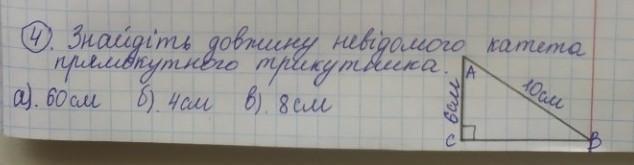 4. Знайдіть довжину невідомого катета
прямокутного трикутника.
а). 60см б). 4см в). 8см
A
6см
10см
C
B